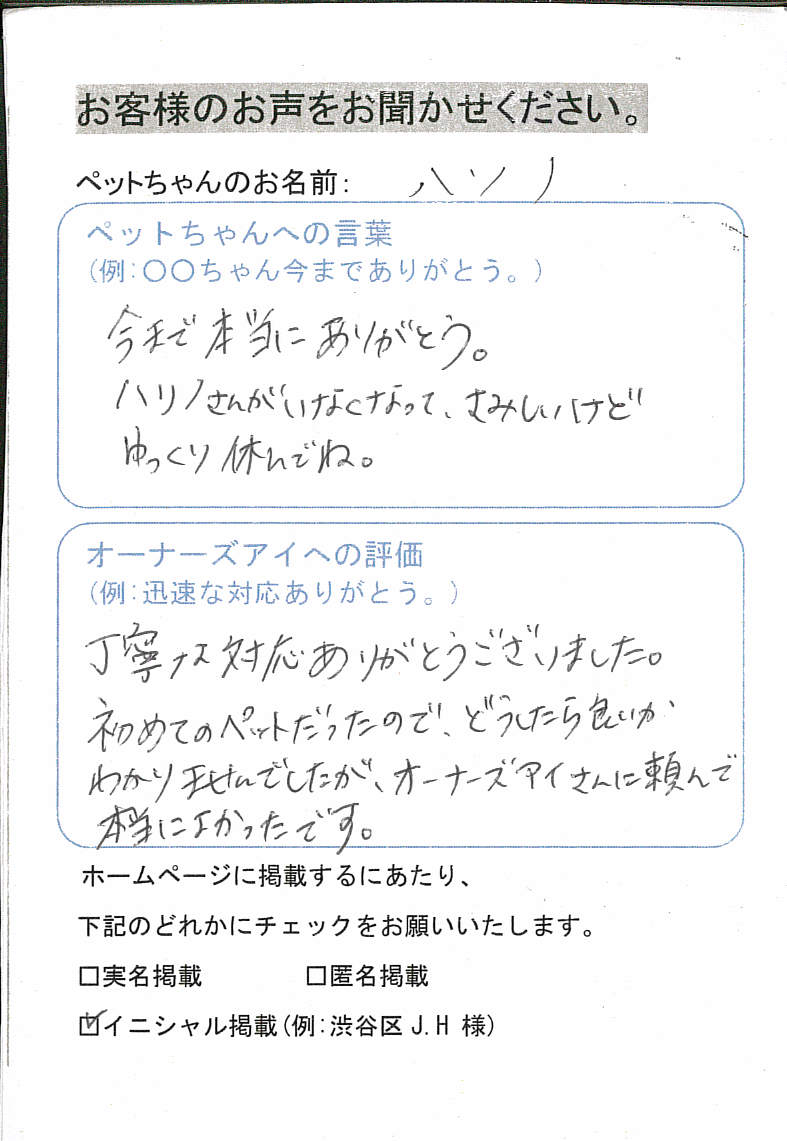 お客様のお声をお聞かせください。
ペットちゃんのお名前： ハリノ
ペットちゃんへの言葉
(例：〇〇ちゃん今までありがとう。)
今まで本当にありがとう。
ハリノさんがいなくなって、さみしいけど
ゆっくり休んでね。
オーナーズアイへの評価
(例：迅速な対応ありがとう。)
丁寧な対応ありがとうございました。
初めてのペットだったので、どうしたら良いか
わかりませんでしたが、オーナーズアイさんに頼んで
本当によかったです。
ホームページに掲載するにあたり、
下記のどれかにチェックをお願いいたします。
□実名掲載 □匿名掲載
☑イニシャル掲載(例：渋谷区 J.H 様)